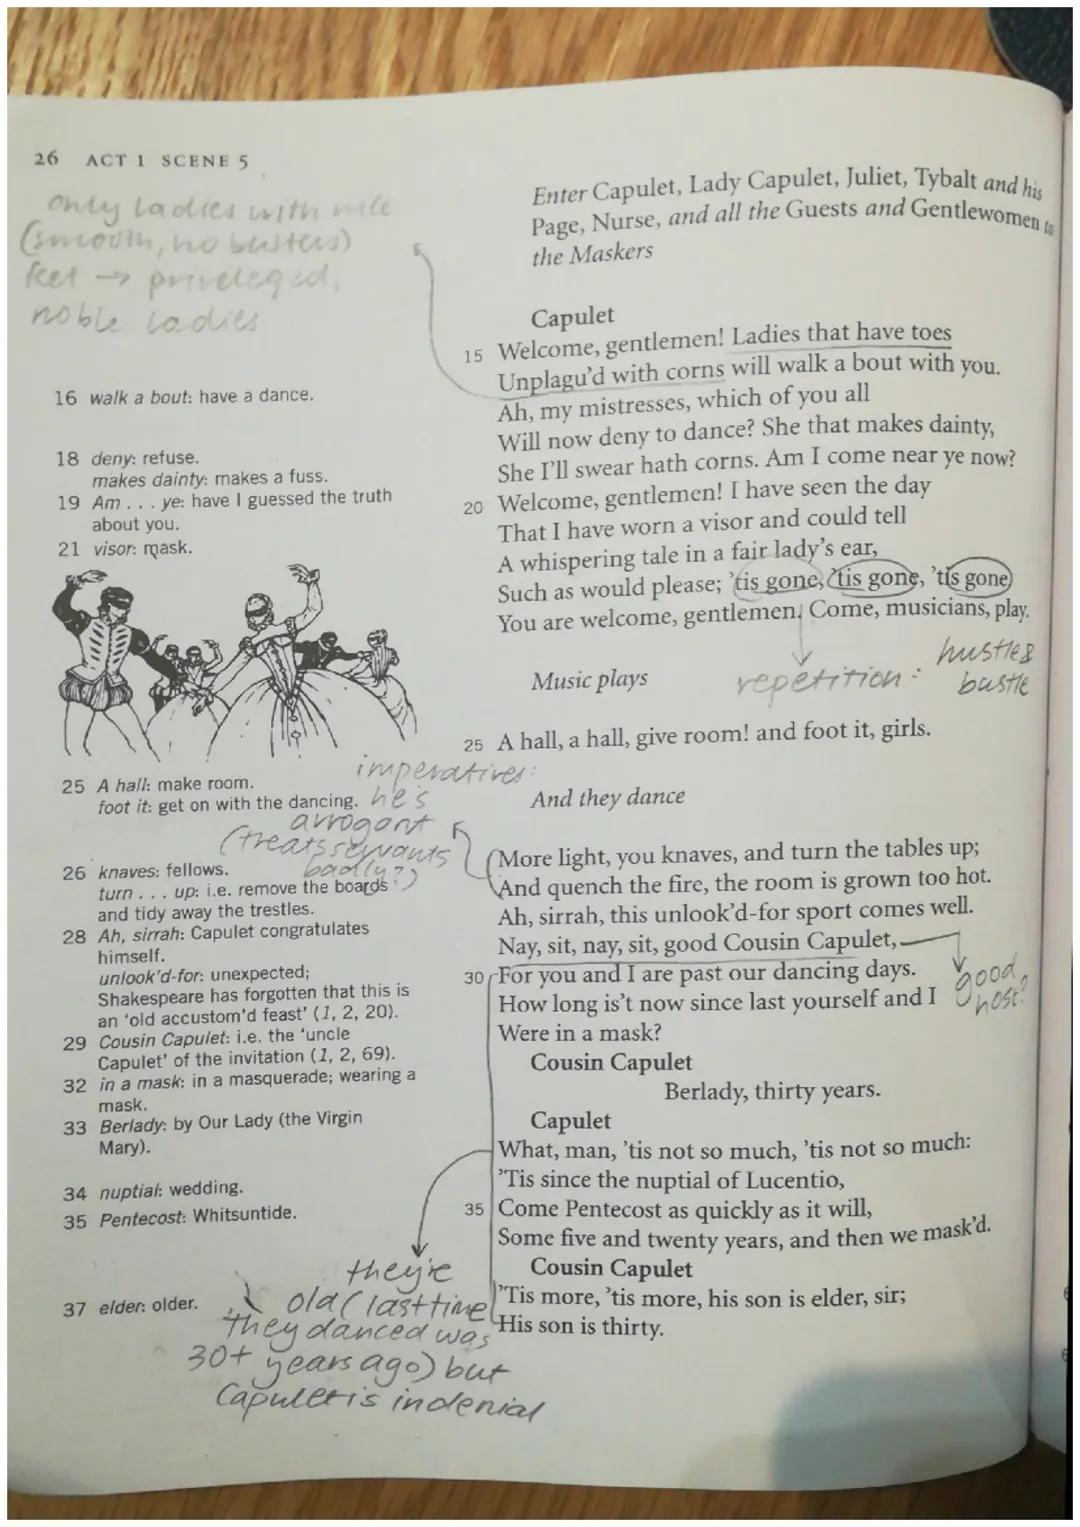 26 ACT 1 SCENE 5
only ladies with nice
(smooth, no busters)
feet → priveleged,
noble ladies
16 walk a bout: have a dance.
18 deny: refuse.
makes dainty: makes a fuss.
19 Am . . . ye: have I guessed the truth
about you.
21 visor: mask.
25 A hall: make room.
foot it: get on with the dancing.
imperatives:
he's
arrogant
(treats servants
badly?)
26 knaves: fellows.
turn . . . up: i.e. remove the boards
and tidy away the trestles.
28 Ah, sirrah: Capulet congratulates
himself.
unlook'd-for: unexpected;
Shakespeare has forgotten that this is
an 'old accustom'd feast' (1, 2, 20).
29 Cousin Capulet: i.e. the 'uncle
Capulet' of the invitation (1, 2, 69).
32 in a mask: in a masquerade; wearing a
mask.
33 Berlady: by Our Lady (the Virgin
Mary).
34 nuptial: wedding.
35 Pentecost: Whitsuntide.
37 elder: older.
they're
old (last time
they danced was
30+ years ago) but
Capulet is in denial
Enter Capulet, Lady Capulet, Juliet, Tybalt and his
Page, Nurse, and all the Guests and Gentlewomen to
the Maskers
Capulet
15 Welcome, gentlemen! Ladies that have toes
Unplagu'd with corns will walk a bout with you.
Ah, my mistresses, which of you all
Will now deny to dance? She that makes dainty,
She I'll swear hath corns. Am I come near ye now?
20 Welcome, gentlemen! I have seen the day
That I have worn a visor and could tell
A whispering tale in a fair lady's ear,
Such as would please; 'tis gone, 'tis gone, 'tis gone,
You are welcome, gentlemen. Come, musicians, play.
repetition: hustle &
bustle
Music plays
25 A hall, a hall, give room! and foot it, girls.
And they dance
More light, you knaves, and turn the tables up;
And quench the fire, the room is grown too hot.
Ah, sirrah, this unlook'd-for sport comes well.
Nay, sit, nay, sit, good Cousin Capulet,
30 For you and I are past our dancing days.
good
host?
How long is't now since last yourself and I
Were in a mask?
Cousin Capulet
Berlady, thirty years.
Capulet
What, man, 'tis not so much, 'tis not so much:
'Tis since the nuptial of Lucentio,
35 Come Pentecost as quickly as it will,
Some five and twenty years, and then we mask'd.
Cousin Capulet
'Tis more, 'tis more, his son is elder, sir;
His son is thirty.